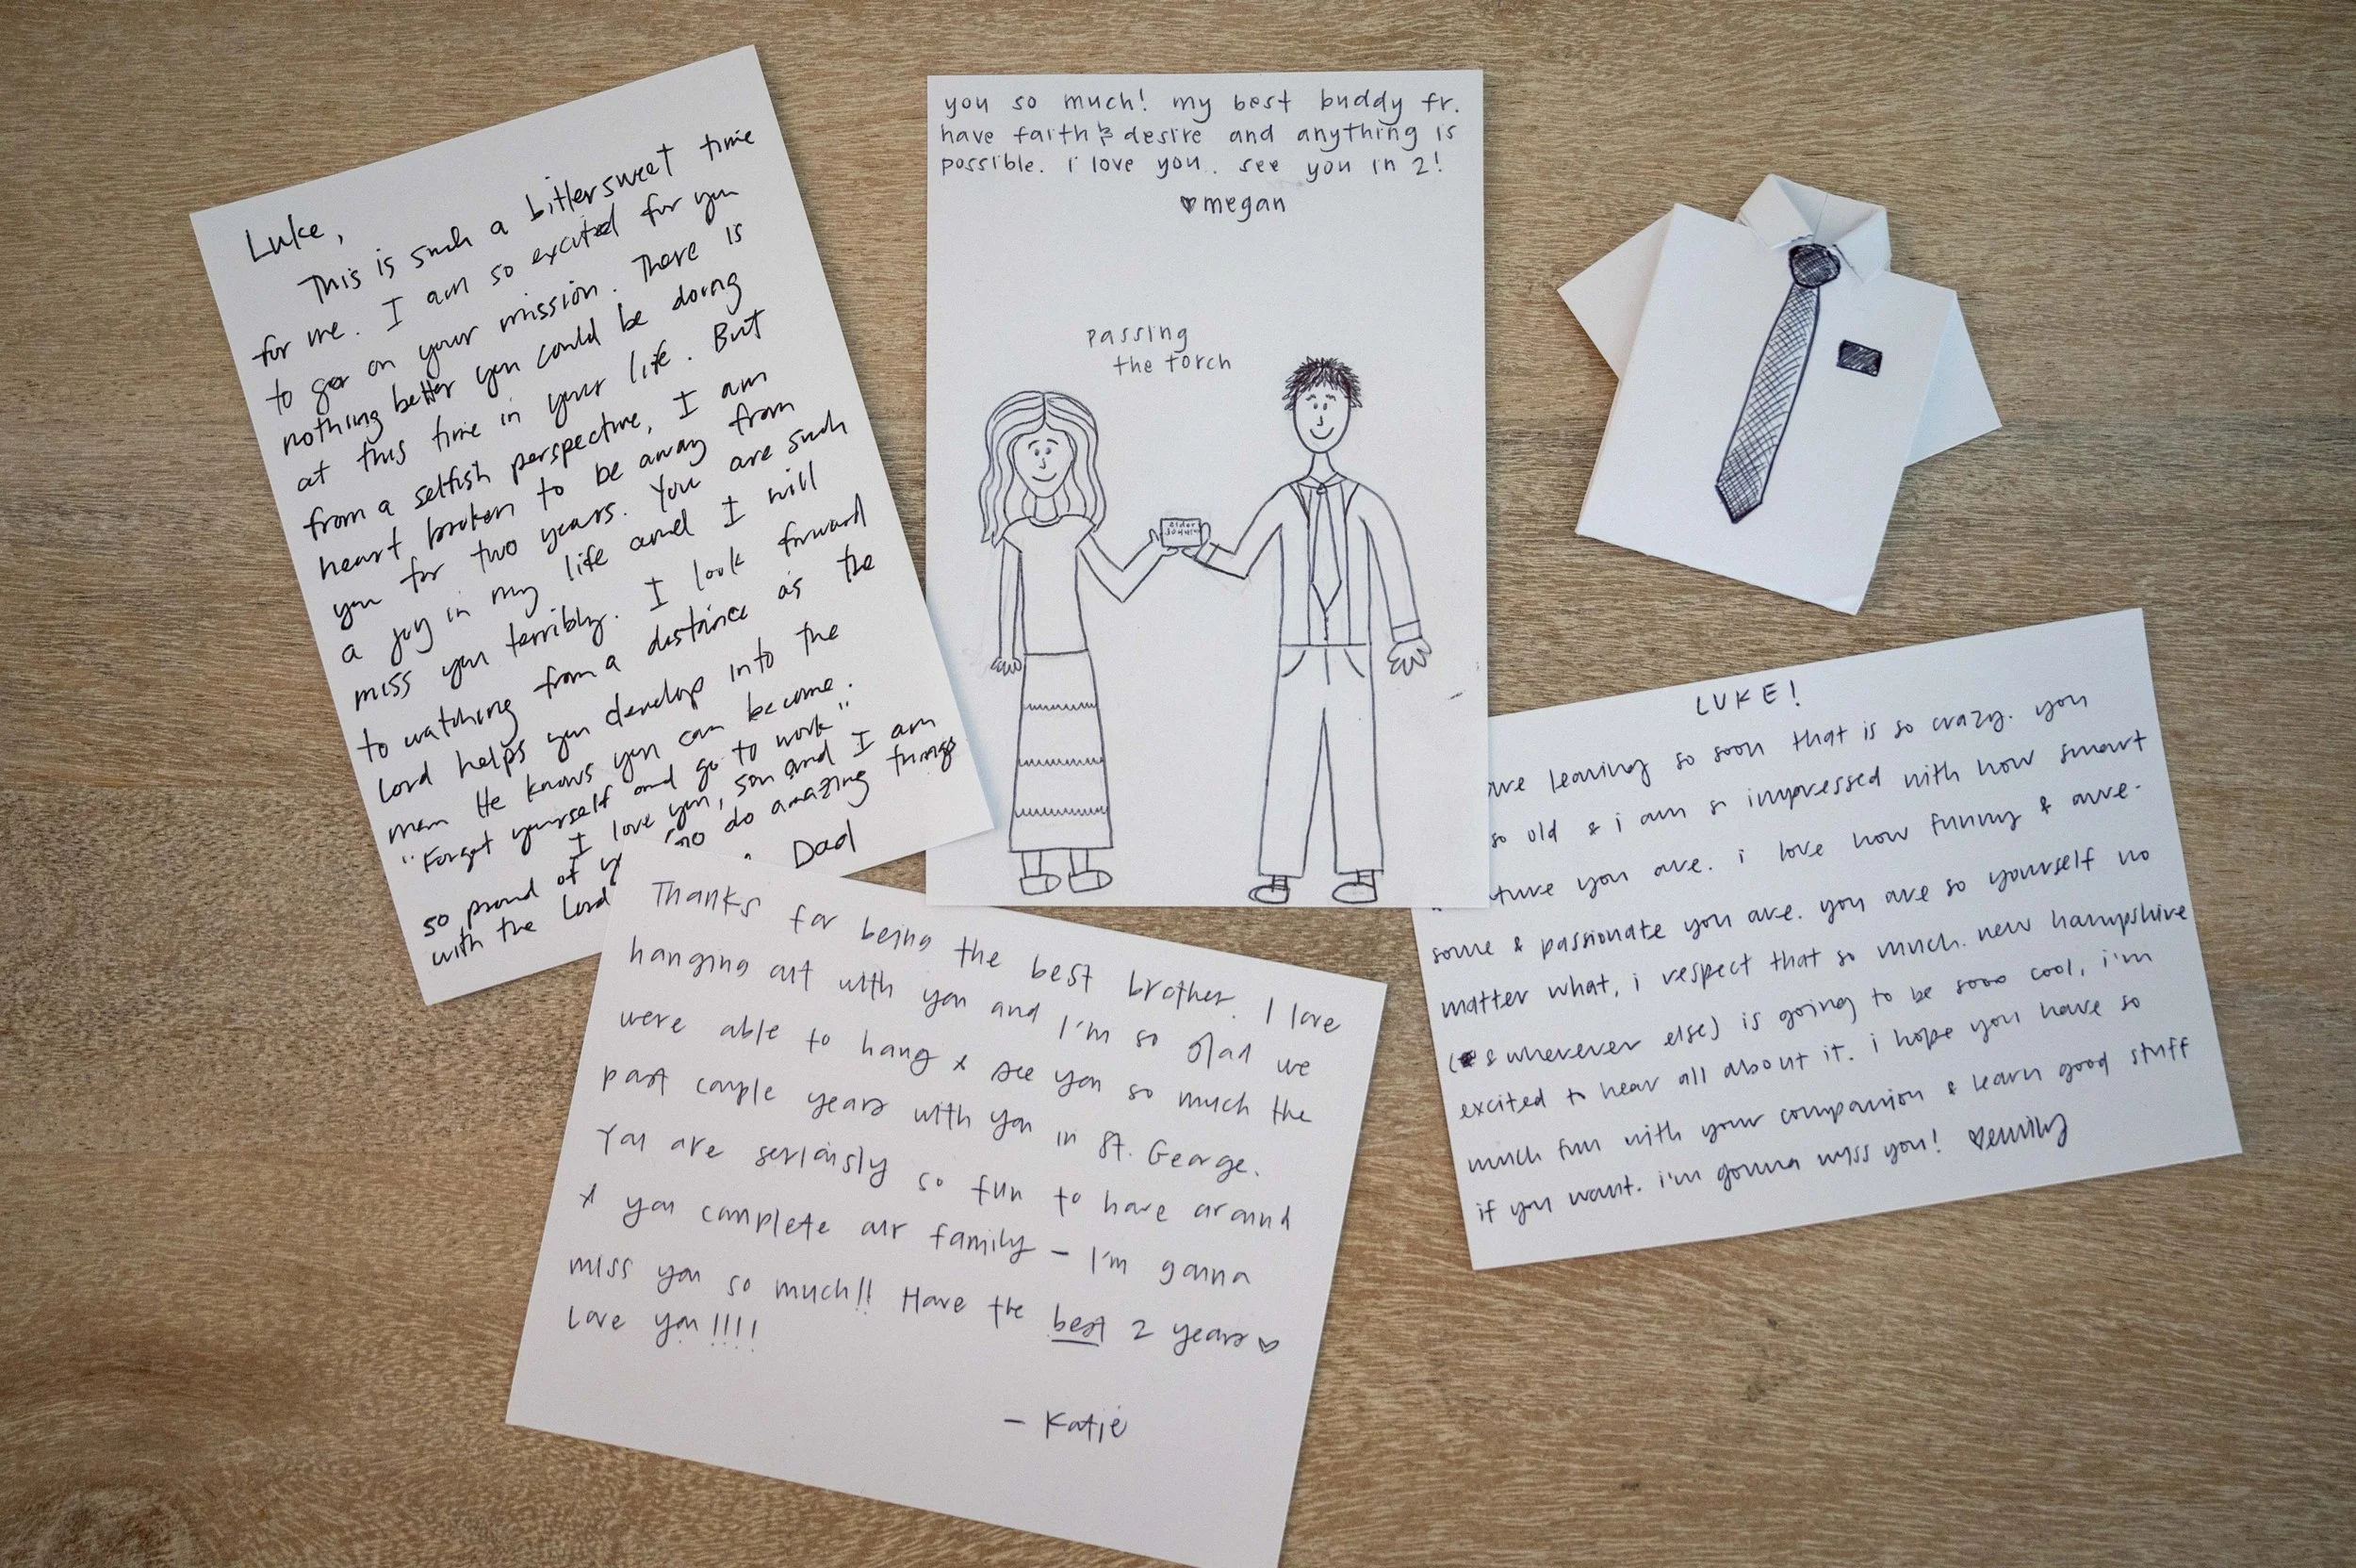 Luke,
This is such a bittersweet time
for me. I am so excited for you
to go on your mission. There is
nothing better you could be doing
at this time in your life. But
from a selfish perspective, I am
heart broken to be away from
you for two years. You are such
a joy in my life and I will
miss you terribly. I look forward
to watching from a distance as the
Lord helps you develop into the
man He knows you can become.
"Forget yourself and go to work".
I love you, son and I am
so proud of go do amazing things
with the Lord
Dad
you so much! my best buddy fr.
have faith & desire and anything is
possible. i love you.. see you in 2!
♥megan
passing
the torch
elder
LUKE!
are leaving so soon that is so crazy. you
so old & i am so impressed with how smart
ture you are. i love how funny & awe-
some & passionate you are. you are so yourself no
matter what, i respect that so much. new hampshire
(& wherever else) is going to be sooo cool, i'm
excited to hear all about it. i hope you have so
much fun with your companion & learn good stuff
if you want. i'm gonna miss you! ♡emily
Thanks for being the best brother. I love
hanging out with you and I'm so glad we
were able to hang & see you so much the
past couple years with you in St. George.
You are seriously so fun to have around
& you complete our family – I'm gonna
miss you so much!! Have the best 2 years ♡
Love you!!!!
– Katie